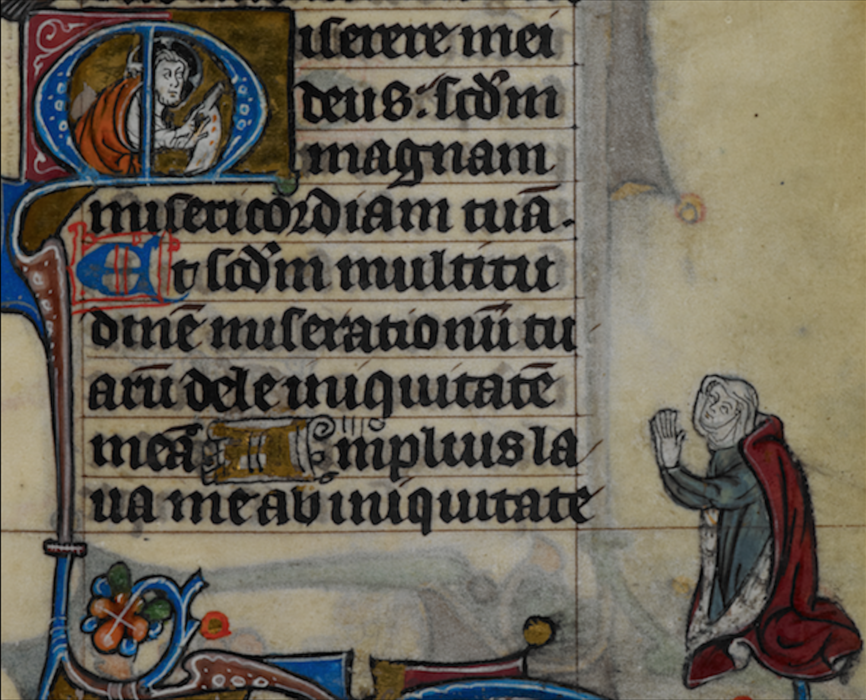 Miserere mei
deus: scd̄m
magnam
misericordiam tuā.
Et scd̄m multitu
dinē miserationū tu
arū dele iniquitatē
meā Amplius la
va me ab iniquitate